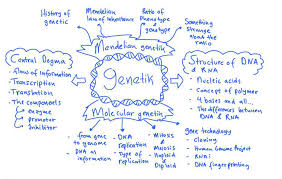 History of
genetic
Mendelian
law of inheritance
Ratio of
Phenotype
& genotype
Something
strange
about the
ratio
Mendelian genetik
Central Dogma
- flows of information
- Transcription
- Translation
- The components
enzyme
promoter
inhibitor
Genetik
Structure of DNA
& RNA
- Nucleic acids
- Concept of polymer
- 4 bases and all...
- The different between
DNA & RNA
Molecular genetik
- from gene
to genome
- DNA as
information
- DNA
replication
- Type of
replication
- Mitosis
- Meiosis
- Haploid
- Diploid
gene technology
- Cloning
- Human Genome Project
- RNAi
- DNA fingerprinting